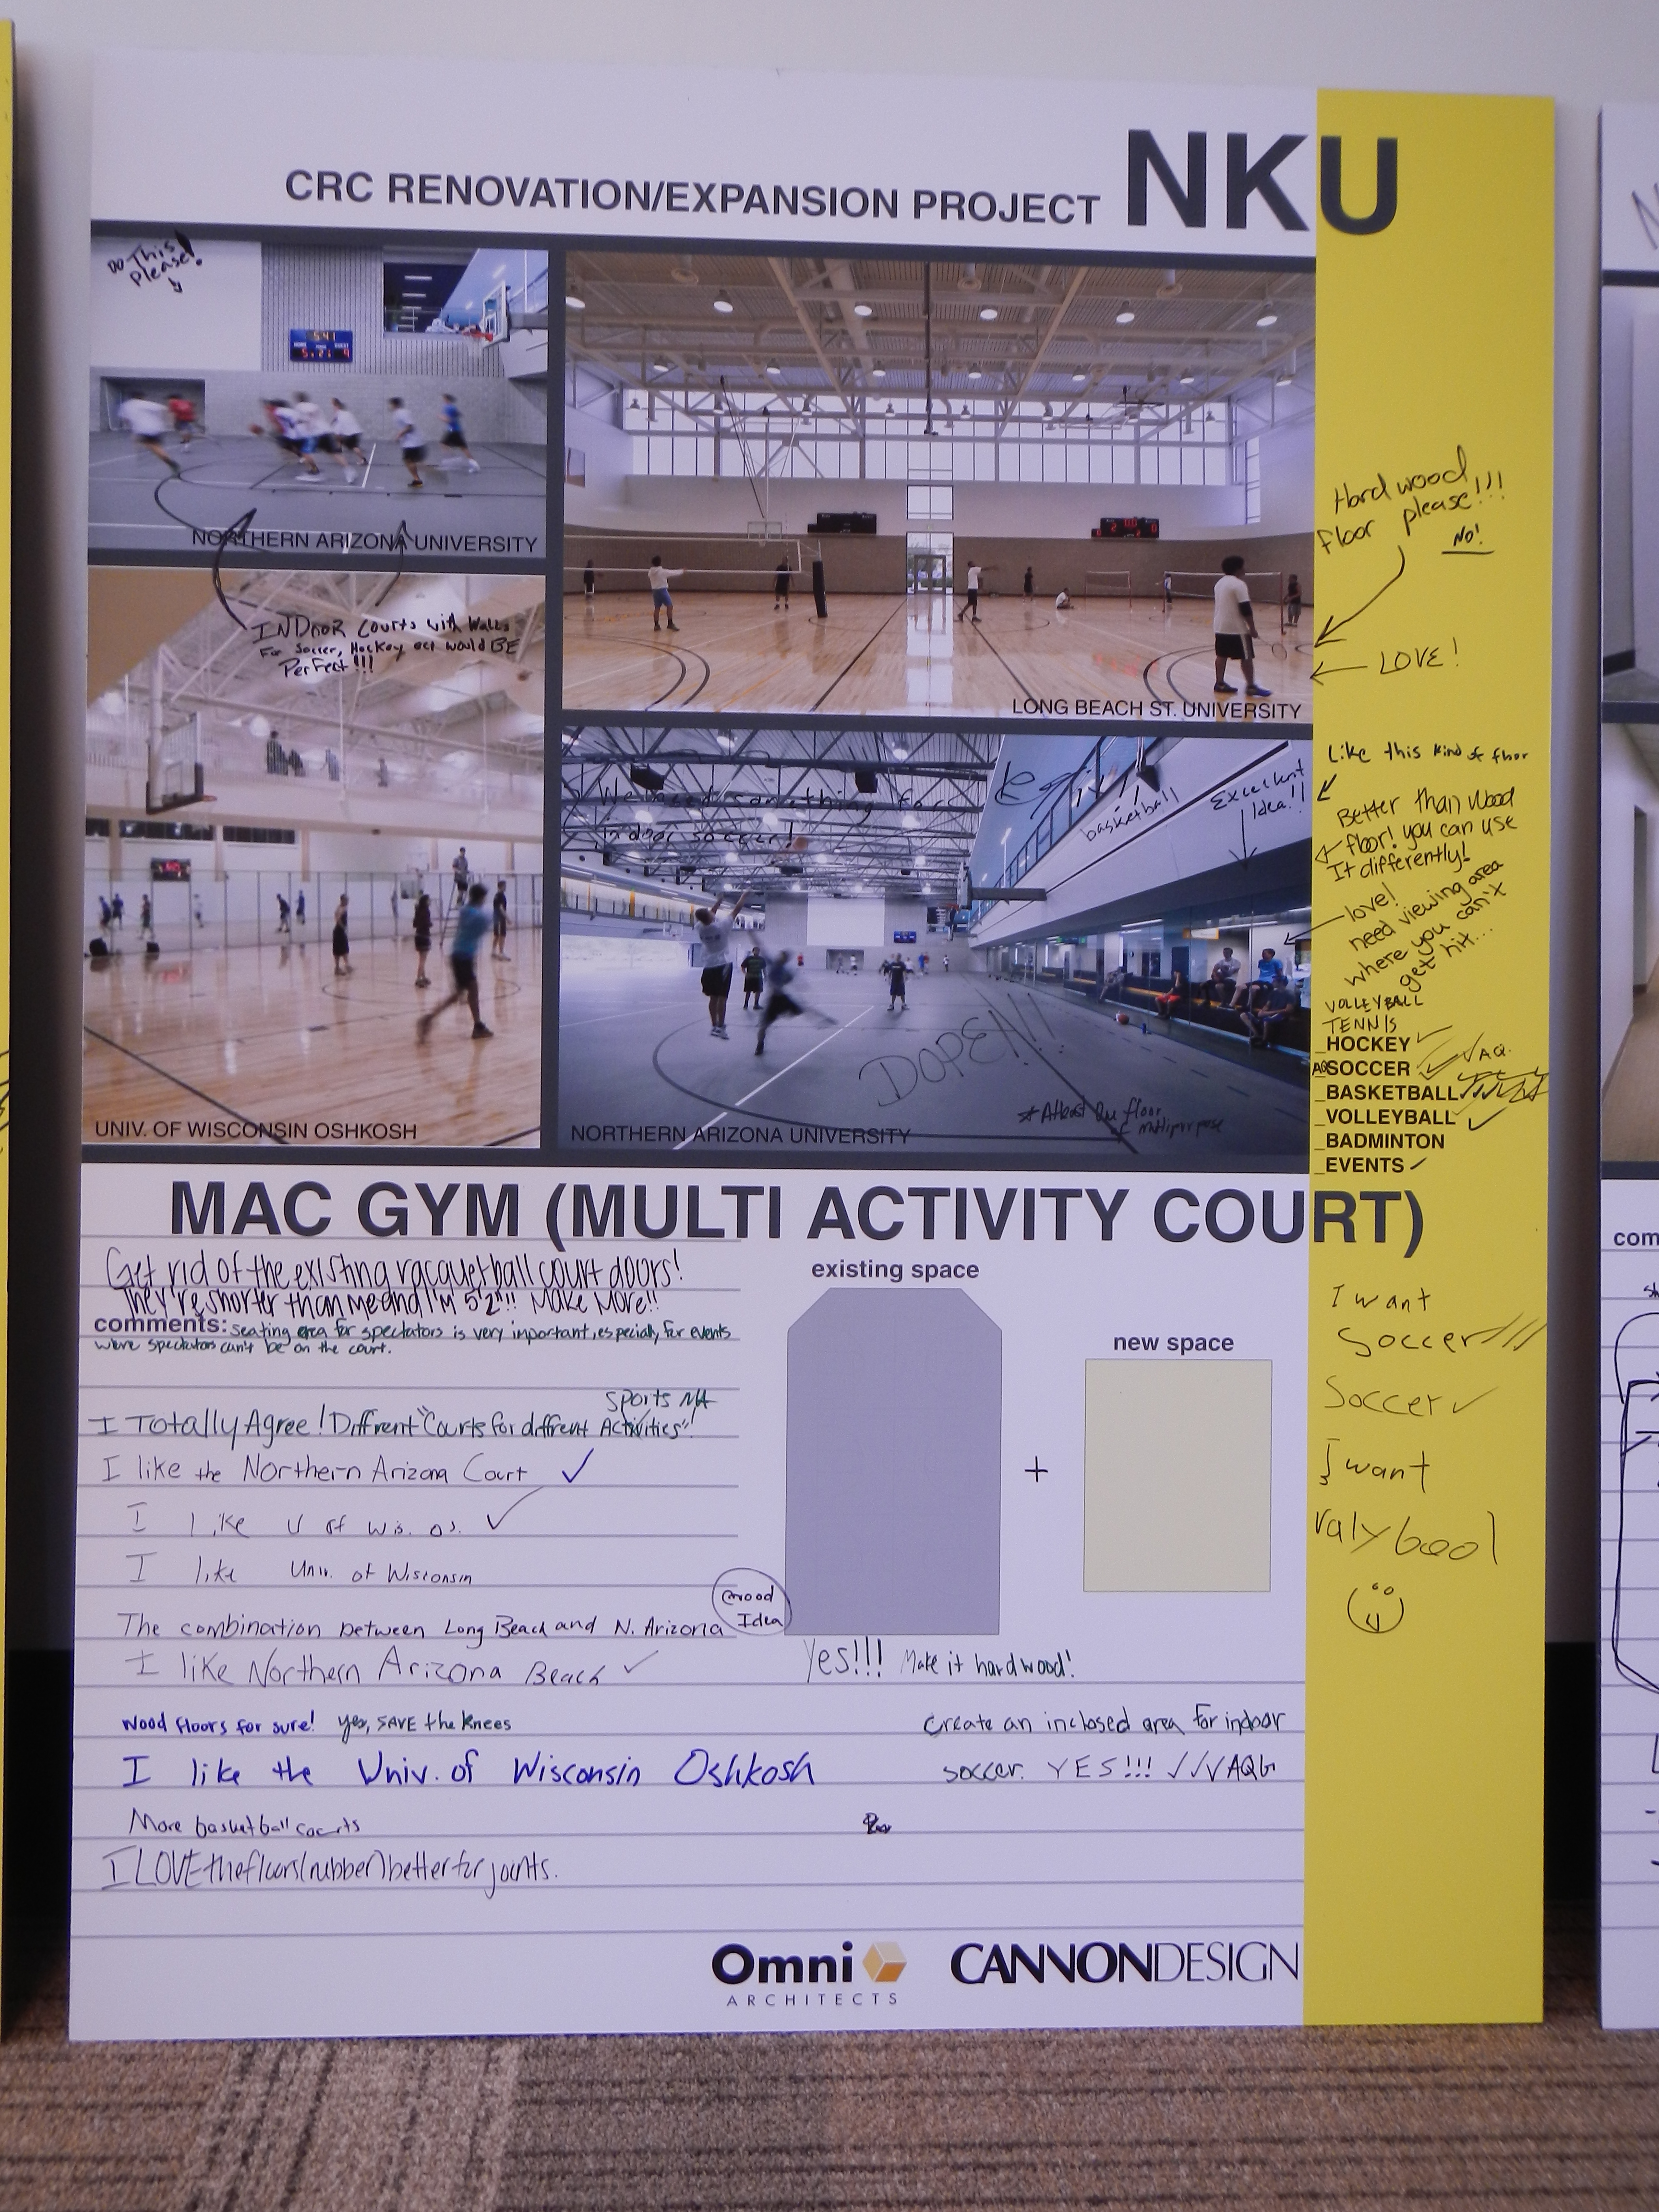 NKU
CRC RENOVATION/EXPANSION PROJECT
DO This
please!
NORTHERN ARIZONA UNIVERSITY
INDOOR Courts with Walls
For Soccer, Hockey ect would BE
PerFect!!!
UNIV. OF WISCONSIN OSHKOSH
LONG BEACH ST. UNIVERSITY
We need something for
indoor soccer!
basketball
Excellent
Idea!!
DOPE!!!
* Atleast One floor
of multipurpose
NORTHERN ARIZONA UNIVERSITY
Hard wood
floor please!!!
NO!
LOVE!
Like this kind of floor
Better than Wood
floor! you can use
It differently!
love!
need viewing area
where you can't
get hit...
VOLLEYBALL
TENNIS
_HOCKEY
AQ SOCCER AQ.
_BASKETBALL
_VOLLEYBALL
_BADMINTON
_EVENTS
MAC GYM (MULTI ACTIVITY COURT)
Get rid of the existing racquetball court doors!
They're shorter than me and I'm 5'2"!! Make More!!
comments: seating area for spectators is very important, especially for events
where spectators can't be on the court.
Sports
I Totally Agree! Diffrent "Courts for diffrent Activities"!
I like the Northern Arizona Court
I like U of Wis. Os.
I like Univ. of Wisconsin
The combination between Long Beach and N. Arizona
Good
Idea
I like Northern Arizona Beach
Wood floors for sure! yes, SAVE the knees
I like the Univ. of Wisconsin Oshkosh
More basketball courts
I LOVE the floors (rubber) better for joints.
existing space
+
new space
Yes!!! Make it hardwood!
Create an inclosed area for indoor
soccer. YES!!!
I want
Soccer
Soccer
I want
valybool
Omni
ARCHITECTS
CANNONDESIGN
com